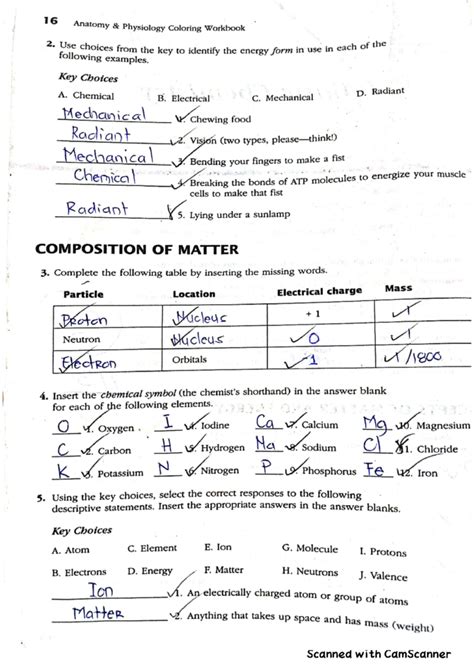 16 Anatomy & Physiology Coloring Workbook
2. Use choices from the key to identify the energy form in use in each of the
following examples.
Key Choices
A. Chemical B. Electrical C. Mechanical D. Radiant
Mechanical 1. Chewing food
Radiant 2. Vision (two types, please—think!)
Mechanical 3. Bending your fingers to make a fist
Chemical 4. Breaking the bonds of ATP molecules to energize your muscle
cells to make that fist
Radiant 5. Lying under a sunlamp
COMPOSITION OF MATTER
3. Complete the following table by inserting the missing words.
Particle Location Electrical charge Mass
Proton Nucleus +1 1
Neutron Nucleus 0 1
Electron Orbitals -1 1/1800
4. Insert the chemical symbol (the chemist's shorthand) in the answer blank
for each of the following elements.
O 1. Oxygen I 4. Iodine Ca 7. Calcium Mg 10. Magnesium
C 2. Carbon H 5. Hydrogen Na 8. Sodium Cl 11. Chloride
K 3. Potassium N 6. Nitrogen P 9. Phosphorus Fe 12. Iron
5. Using the key choices, select the correct responses to the following
descriptive statements. Insert the appropriate answers in the answer blanks.
Key Choices
A. Atom C. Element E. Ion G. Molecule I. Protons
B. Electrons D. Energy F. Matter H. Neutrons J. Valence
Ion 1. An electrically charged atom or group of atoms
Matter 2. Anything that takes up space and has mass (weight)
Scanned with CamScanner